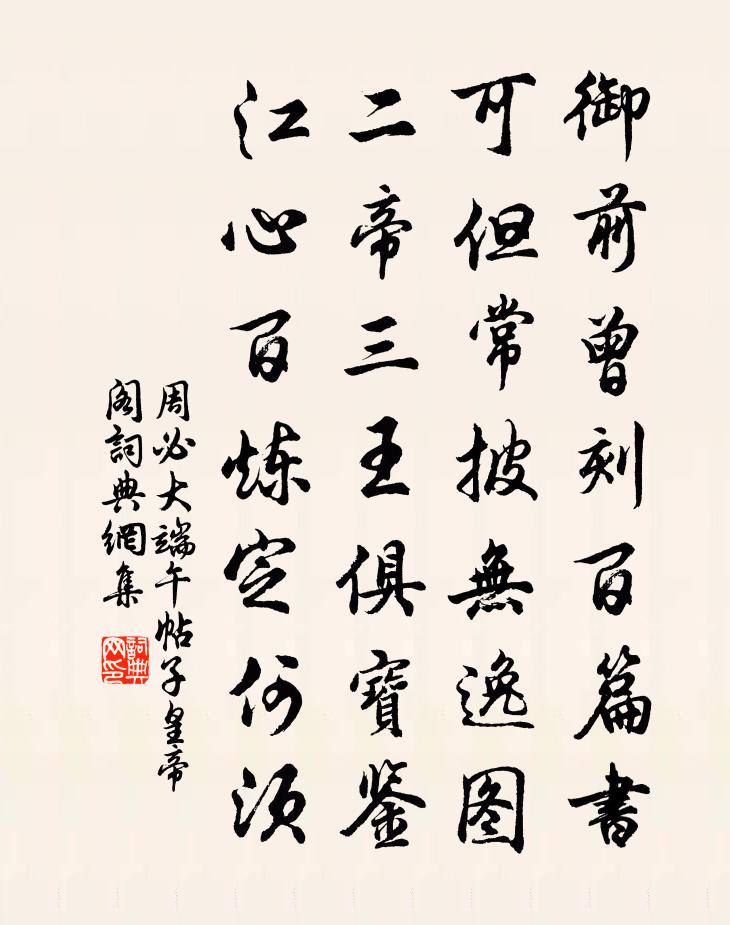 御前曾刻百篇書
可但常披無逸图
二帝三王俱寶鉴
江心百炼定何須
周必大端午帖子皇帝
阁詞典網集
詞典网印